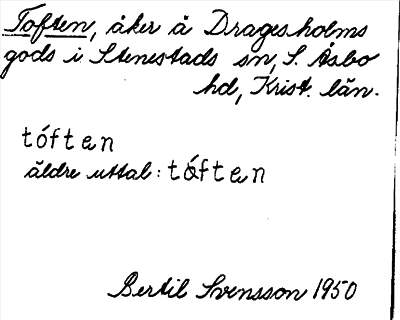 Toften, åker å Dragesholms
gods i Stenestads sn, S. Åsbo
hd, Krist. län.
tóften
äldre uttal: tóften
Bertil Svensson 1950